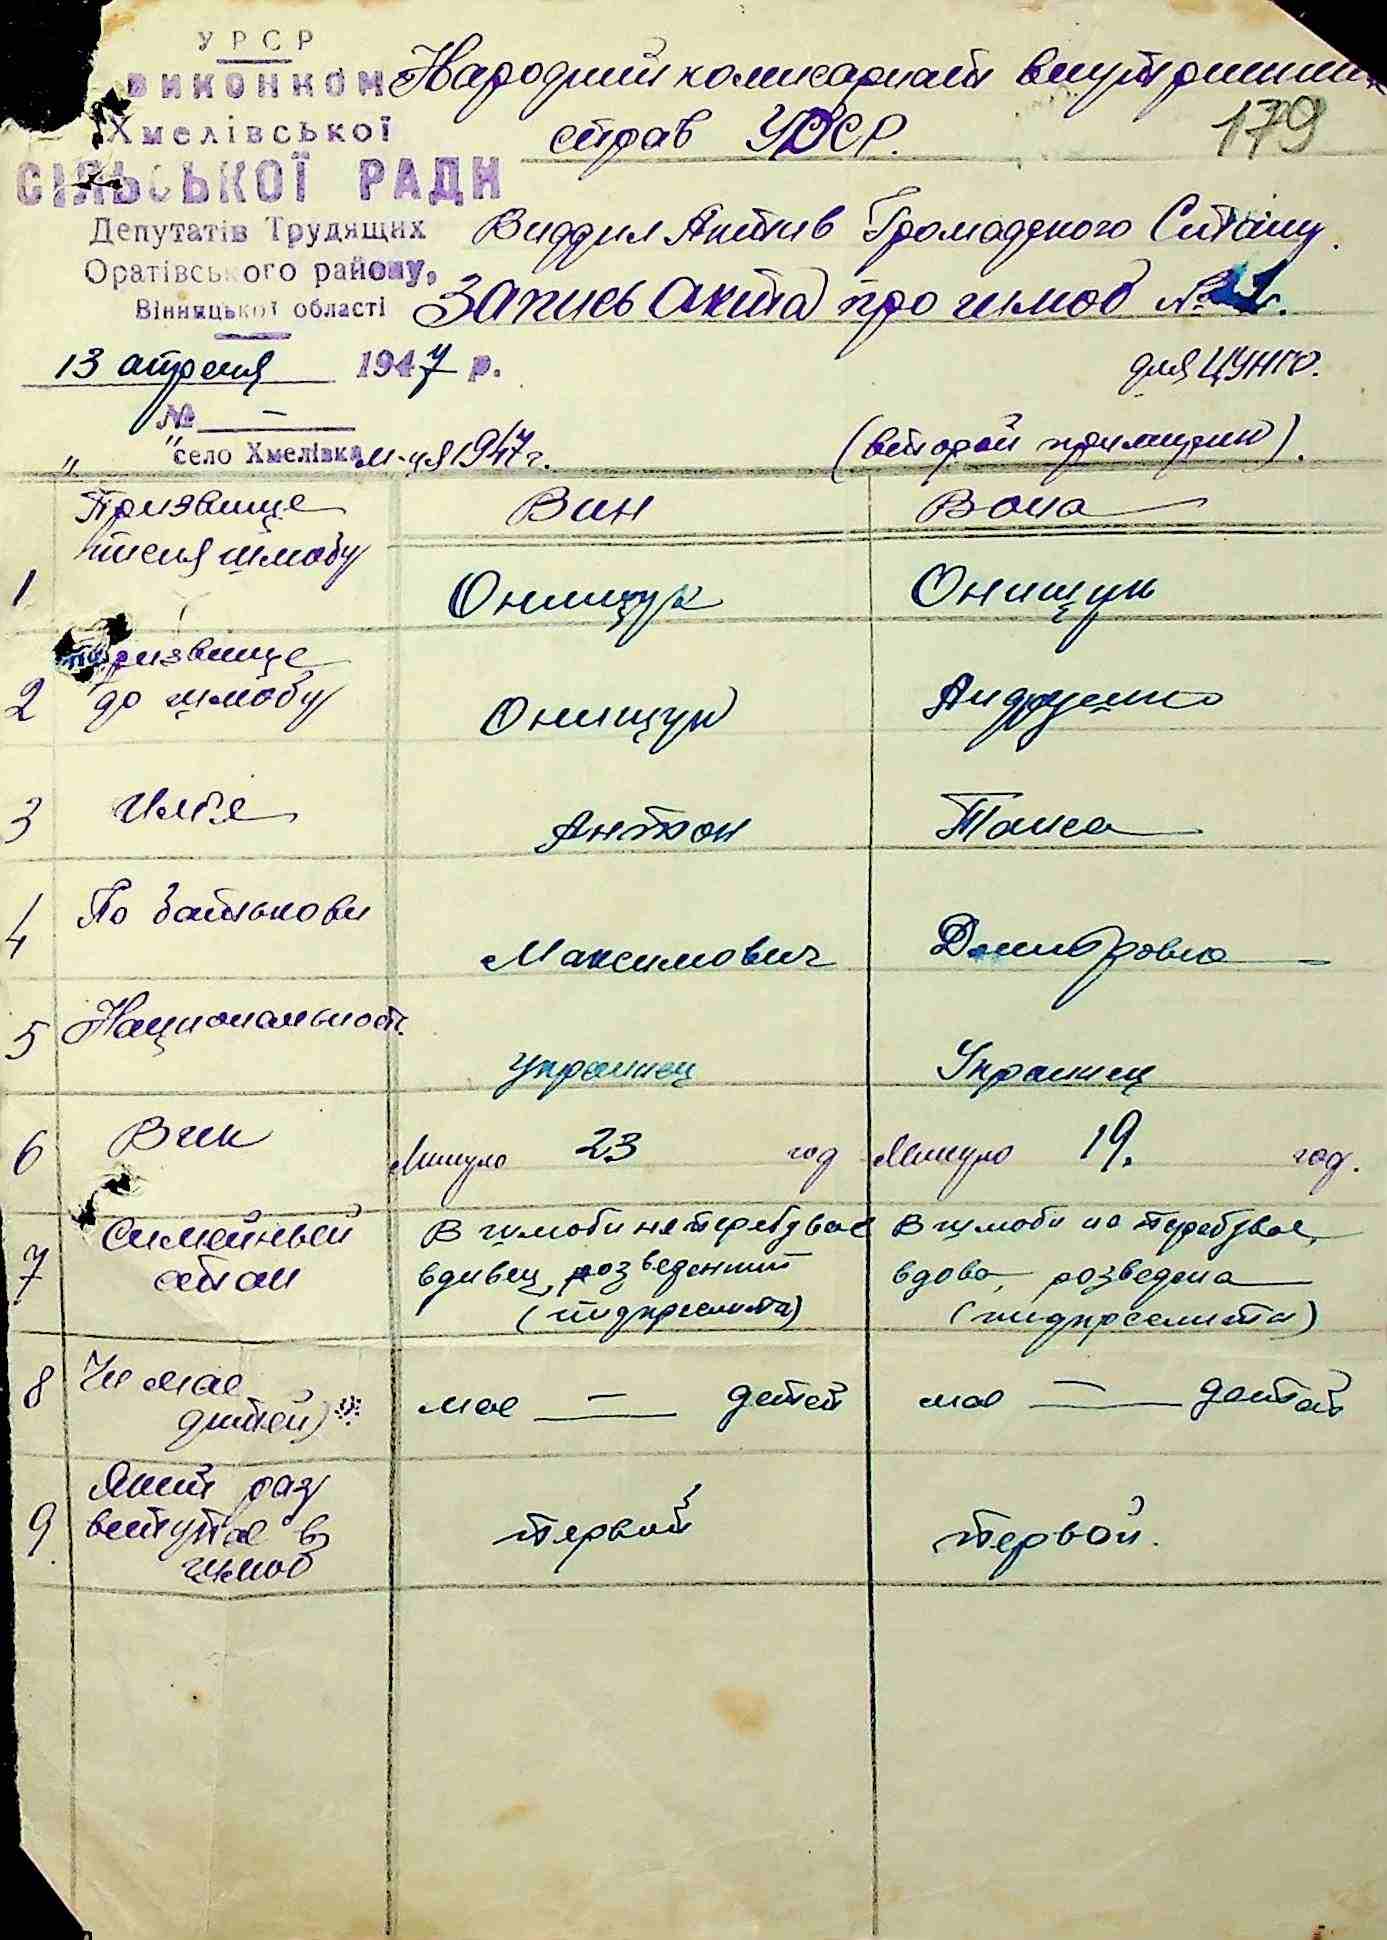 УРСР
ВИКОНКОМ
Хмелівської
СІЛЬСЬКОЇ РАДИ
Депутатів Трудящих
Оратівського району,
Вінницької області
13 апреля 1947 р.
№ —
" " село Хмелівка м-ця 1947 г.
Народний комисариат внутришних
справ УССР.
179
Виддил Актив ГромадскогоСитану.
Запись акта про шлюб № 1.
для ЦУНГО.
(второй примирник).
Призвище Вин Вона
писля шлюбу
1 Онищук Онищук
Призвище
2 до шлюбу Онищук Андрущко
3 Имья Антон Таиса
4 По батькови Максимович Дмитровна
5 Национальност. Украинец Украинец
6 Вик Минуло 23 год Минуло 19. год.
7 Симейный стан
В шлюби не перебувае
вдивец, розведенний
(пидкреслити)
В шлюби не перебувае,
вдова, розведена
(пидкреслити)
8 Чи мае дитей)
мае — детей мае — детей
9 Який раз
вступае в
шлюб
первой первой.